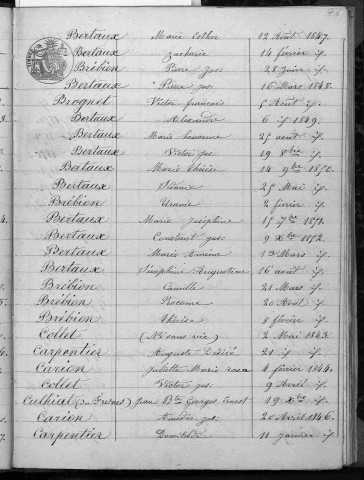 95
Bertaux Marie Esther 12 Août 1847.
Bertaux Zacharie 14 février if.
Brébion Pierre Jos. 28 Juin if.
Bertaux Pierre jos. 16 Mars 1848.
Brognet Victor françois 5 Août if.
Bertaux Alexandre 6 if 1849.
Bertaux Marie 25 août if.
Bertaux Victor jos. 19 8bre if.
Bertaux Marie 14 9bre 1850.
Bertaux 25 Mai if.
Brébion Uranie 2 février if.
Bertaux Marie Joséphine 15 7bre 1851.
Bertaux Constant jos. 9 Xbre 1852.
Bertaux Marie 12 Mars if.
Bertaux Séraphine Augustine 16 août if.
Brébion Camille 21 Mars if.
Brébion 20 Août if.
Brébion 8 février if.
Collet (Né sans vie) 2 Mai 1843.
Carpentier Auguste Désiré 21 if if.
Carion Juliette Marie rosa 4 février 1844.
Collet Victor jos. 9 Avril if.
Culhiat (du Fresnes) Jean Bte Georges Ernest 19 Xbre if.
Carion Amédée jos. 20 Avril 1846.
Carpentier Domitilde 11 janvier if.